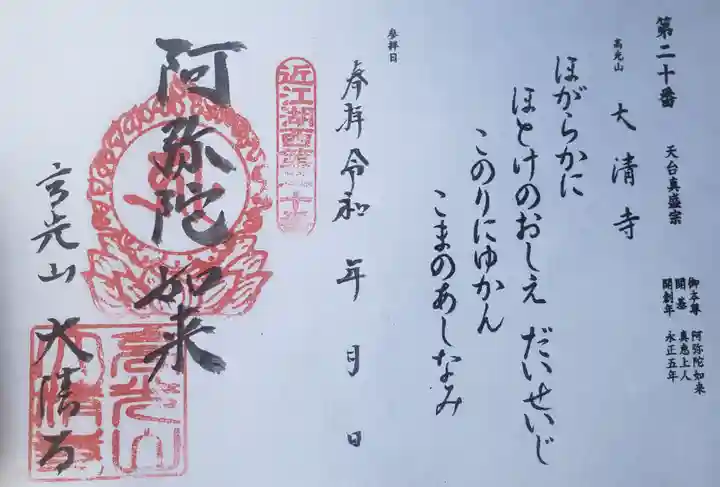 第二十番 天台真盛宗
高光山 大清寺
御本尊 阿弥陀如来
開基 真恵上人
開創年 永正五年
ほがらかに
ほとけのおしえ だいせいじ
このりにゆかん
こまのあしなみ
参拝日
奉拝 令和 年 月 日
近江湖西第二十番
阿弥陀如来
高光山 大清寺